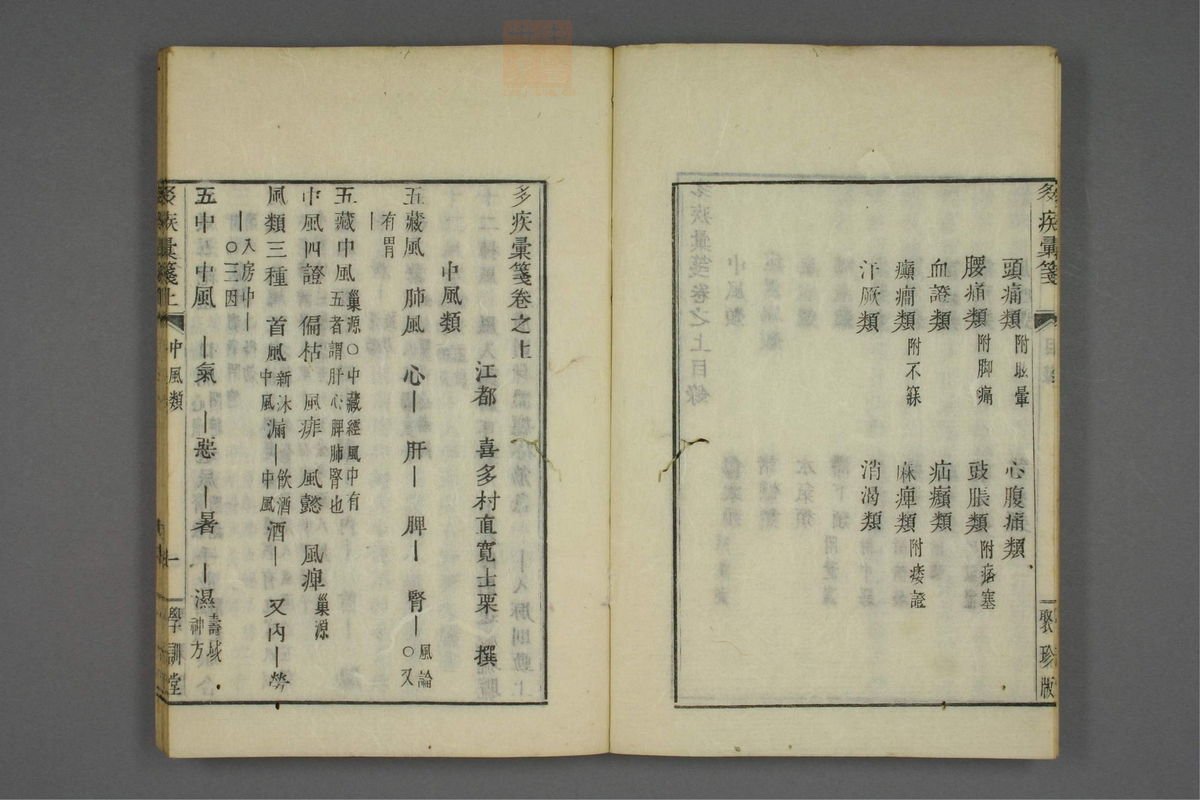 多疾彙箋
聚珍版
頭痛類 附眩暈 心腹痛類
腰痛類 附脚痛 鼓脹類 附痞塞
血證類 疝㿗類
癲癇類 附不寐 麻痺類 附痿證
汗厥類 消渴類
多疾彙箋卷之上
江都 喜多村直寬士栗 撰
中風類
五藏風 肺風 心｜ 肝｜ 脾｜ 腎｜ 風論 ○又
有胃
｜
五藏中風 巢源○中藏經風中有
五者謂肝心脾肺腎也
中風四證 偏枯 風痱 風懿 風痺 巢源
風類三種 首風 新沐中風 漏｜ 飲酒中風 酒｜ 又內｜ 勞
｜ 入房中｜
○三因
五中 中風 ｜氣 ｜惡 ｜暑 ｜濕 壽域神方
多疾彙箋上
中風類
一
學訓堂